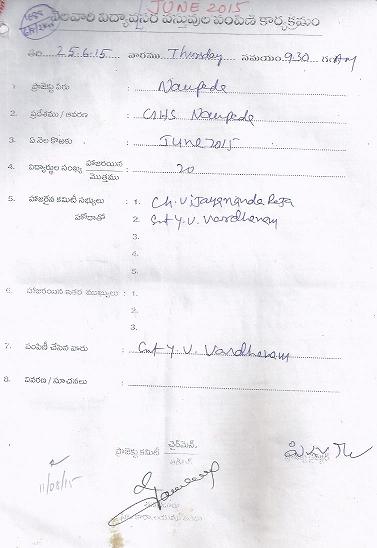 JUNE 2015
నెలవారి విద్యావసర వస్తువుల పంపిణి కార్యక్రమం
తేది. 25.6.15 వారము Thursday సమయం 9.30 గం AM
1. ప్రాజెక్టు పేరు : Naupede
2. ప్రదేశము / ఆవరణ : Naupede
3. ఏ నెల కొఱకు : June 2015
4. విద్యార్థుల సంఖ్య హాజరయిన / మొత్తము : 20
5. హాజరైన కమిటీ సభ్యులు : 1. Ch. Vijayananda Raja
హోదాతో 2. Smt Y.V. Vardhanam
3.
4.
5.
6. హాజరయిన ఇతర ముఖ్యులు : 1.
2.
3.
7. పంపిణీ చేసిన వారు : Smt Y. V. Vardhanam
8. వివరణ / సూచనలు :
ప్రాజెక్టు కమిటీ ఛైర్మెన్
11/08/15